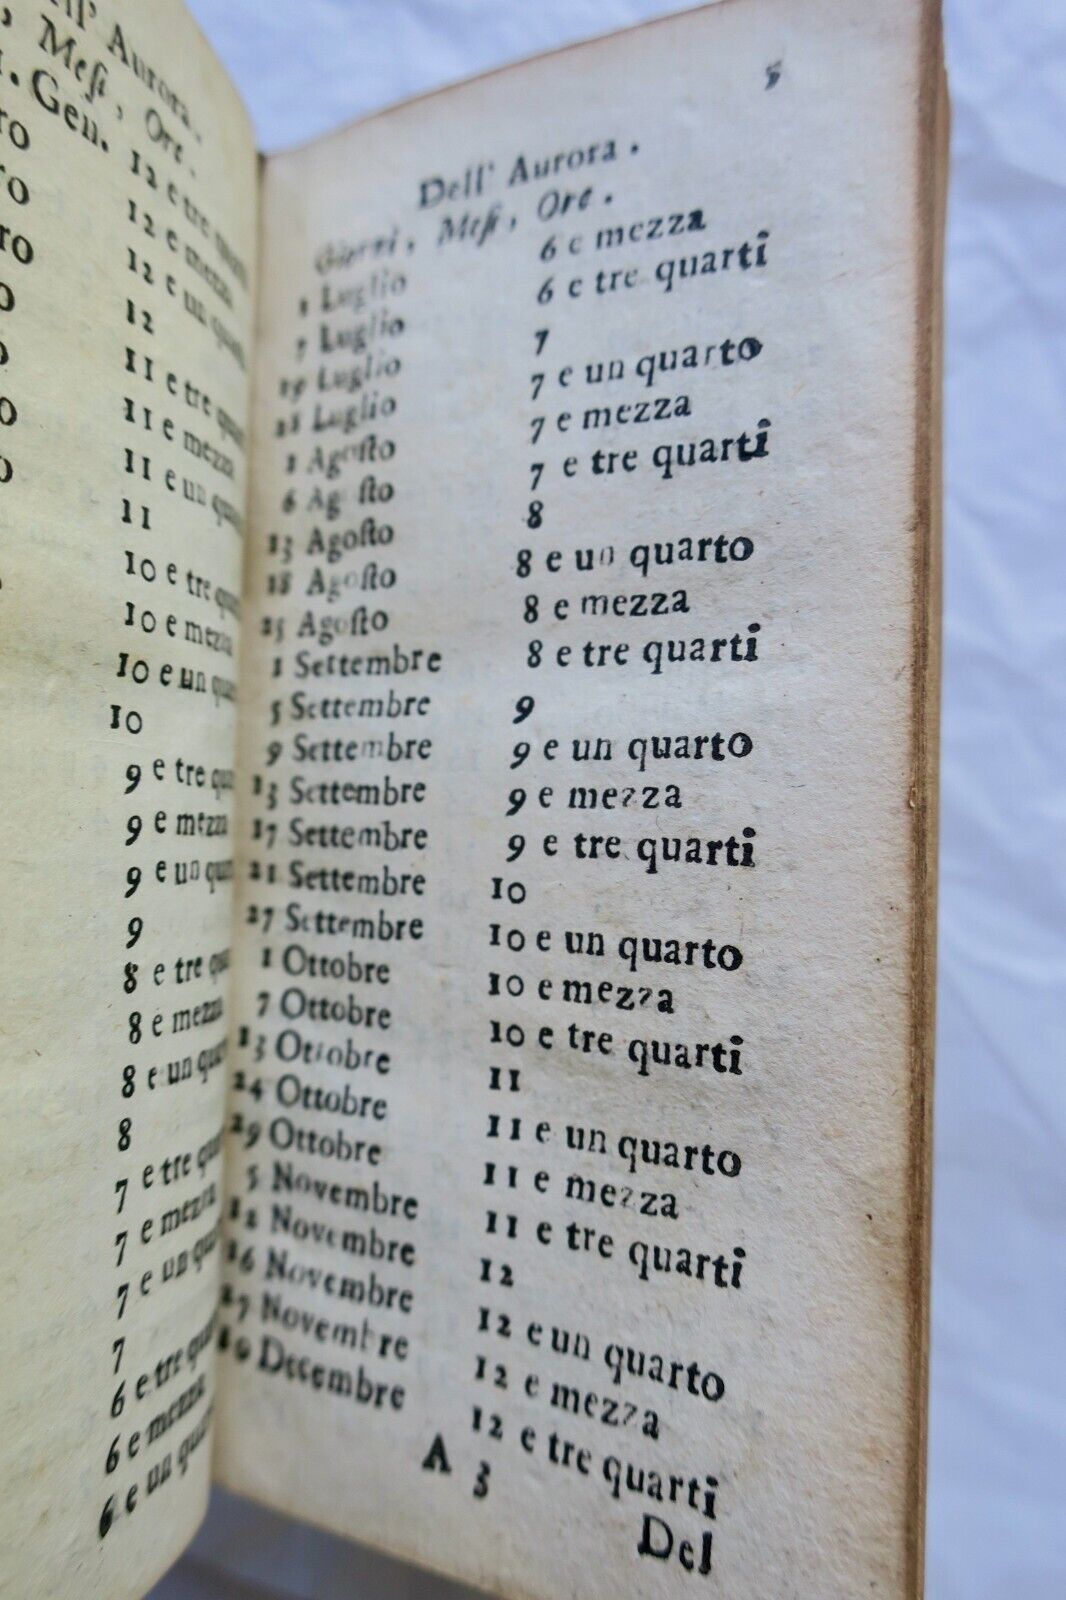 ll' Aurora.
, Meſi, Ore.
1. Gen. 12 e tre
ro 12 e mezza
ro 12 e un
ro 12
11 e tre
11 e mezza
11 e un
11
10 e tre
10 e mezza
10 e un
10
9 e tre
9 e mezza
9 e un
9
8 e tre
8 e mezza
8 e un
8
7 e tre
7 e mezza
7 e un
7
6 e tre
6 e mezza
6 e un
5
Dell' Aurora.
Giorni, Meſi, Ore.
1 Luglio 6 e mezza
7 Luglio 6 e tre quarti
Luglio 7
Luglio 7 e un quarto
1 Agoſto 7 e mezza
6 Agoſto 7 e tre quarti
13 Agoſto 8
18 Agoſto 8 e un quarto
25 Agoſto 8 e mezza
1 Settembre 8 e tre quarti
5 Settembre 9
9 Settembre 9 e un quarto
13 Settembre 9 e mezza
17 Settembre 9 e tre quarti
21 Settembre 10
27 Settembre 10 e un quarto
1 Ottobre 10 e mezza
7 Ottobre 10 e tre quarti
13 Ottobre 11
24 Ottobre 11 e un quarto
29 Ottobre 11 e mezza
5 Novembre 11 e tre quarti
Novembre 12
16 Novembre 12 e un quarto
27 Novembre 12 e mezza
Decembre 12 e tre quarti
A 3
Del